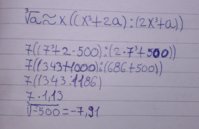 ∛a≈x((x³+2a):(2x³+a))
7((7³+2·500):(2·7³+500))
7((343+1000):(686+500))
7(1343:1186)
7·1,13
∛-500=-7,91